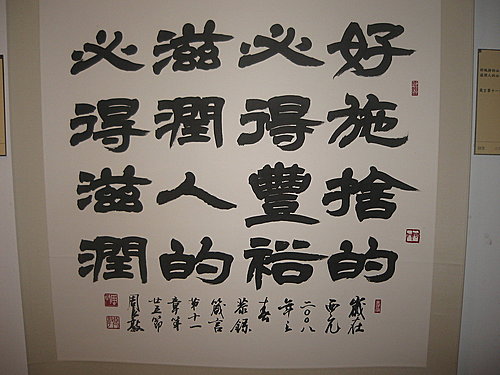 好施捨的
必得豐裕
滋潤人的
必得滋潤
歲在
西元
二〇〇八
年之
春
恭錄
箴言
第十一
章第
廿五節